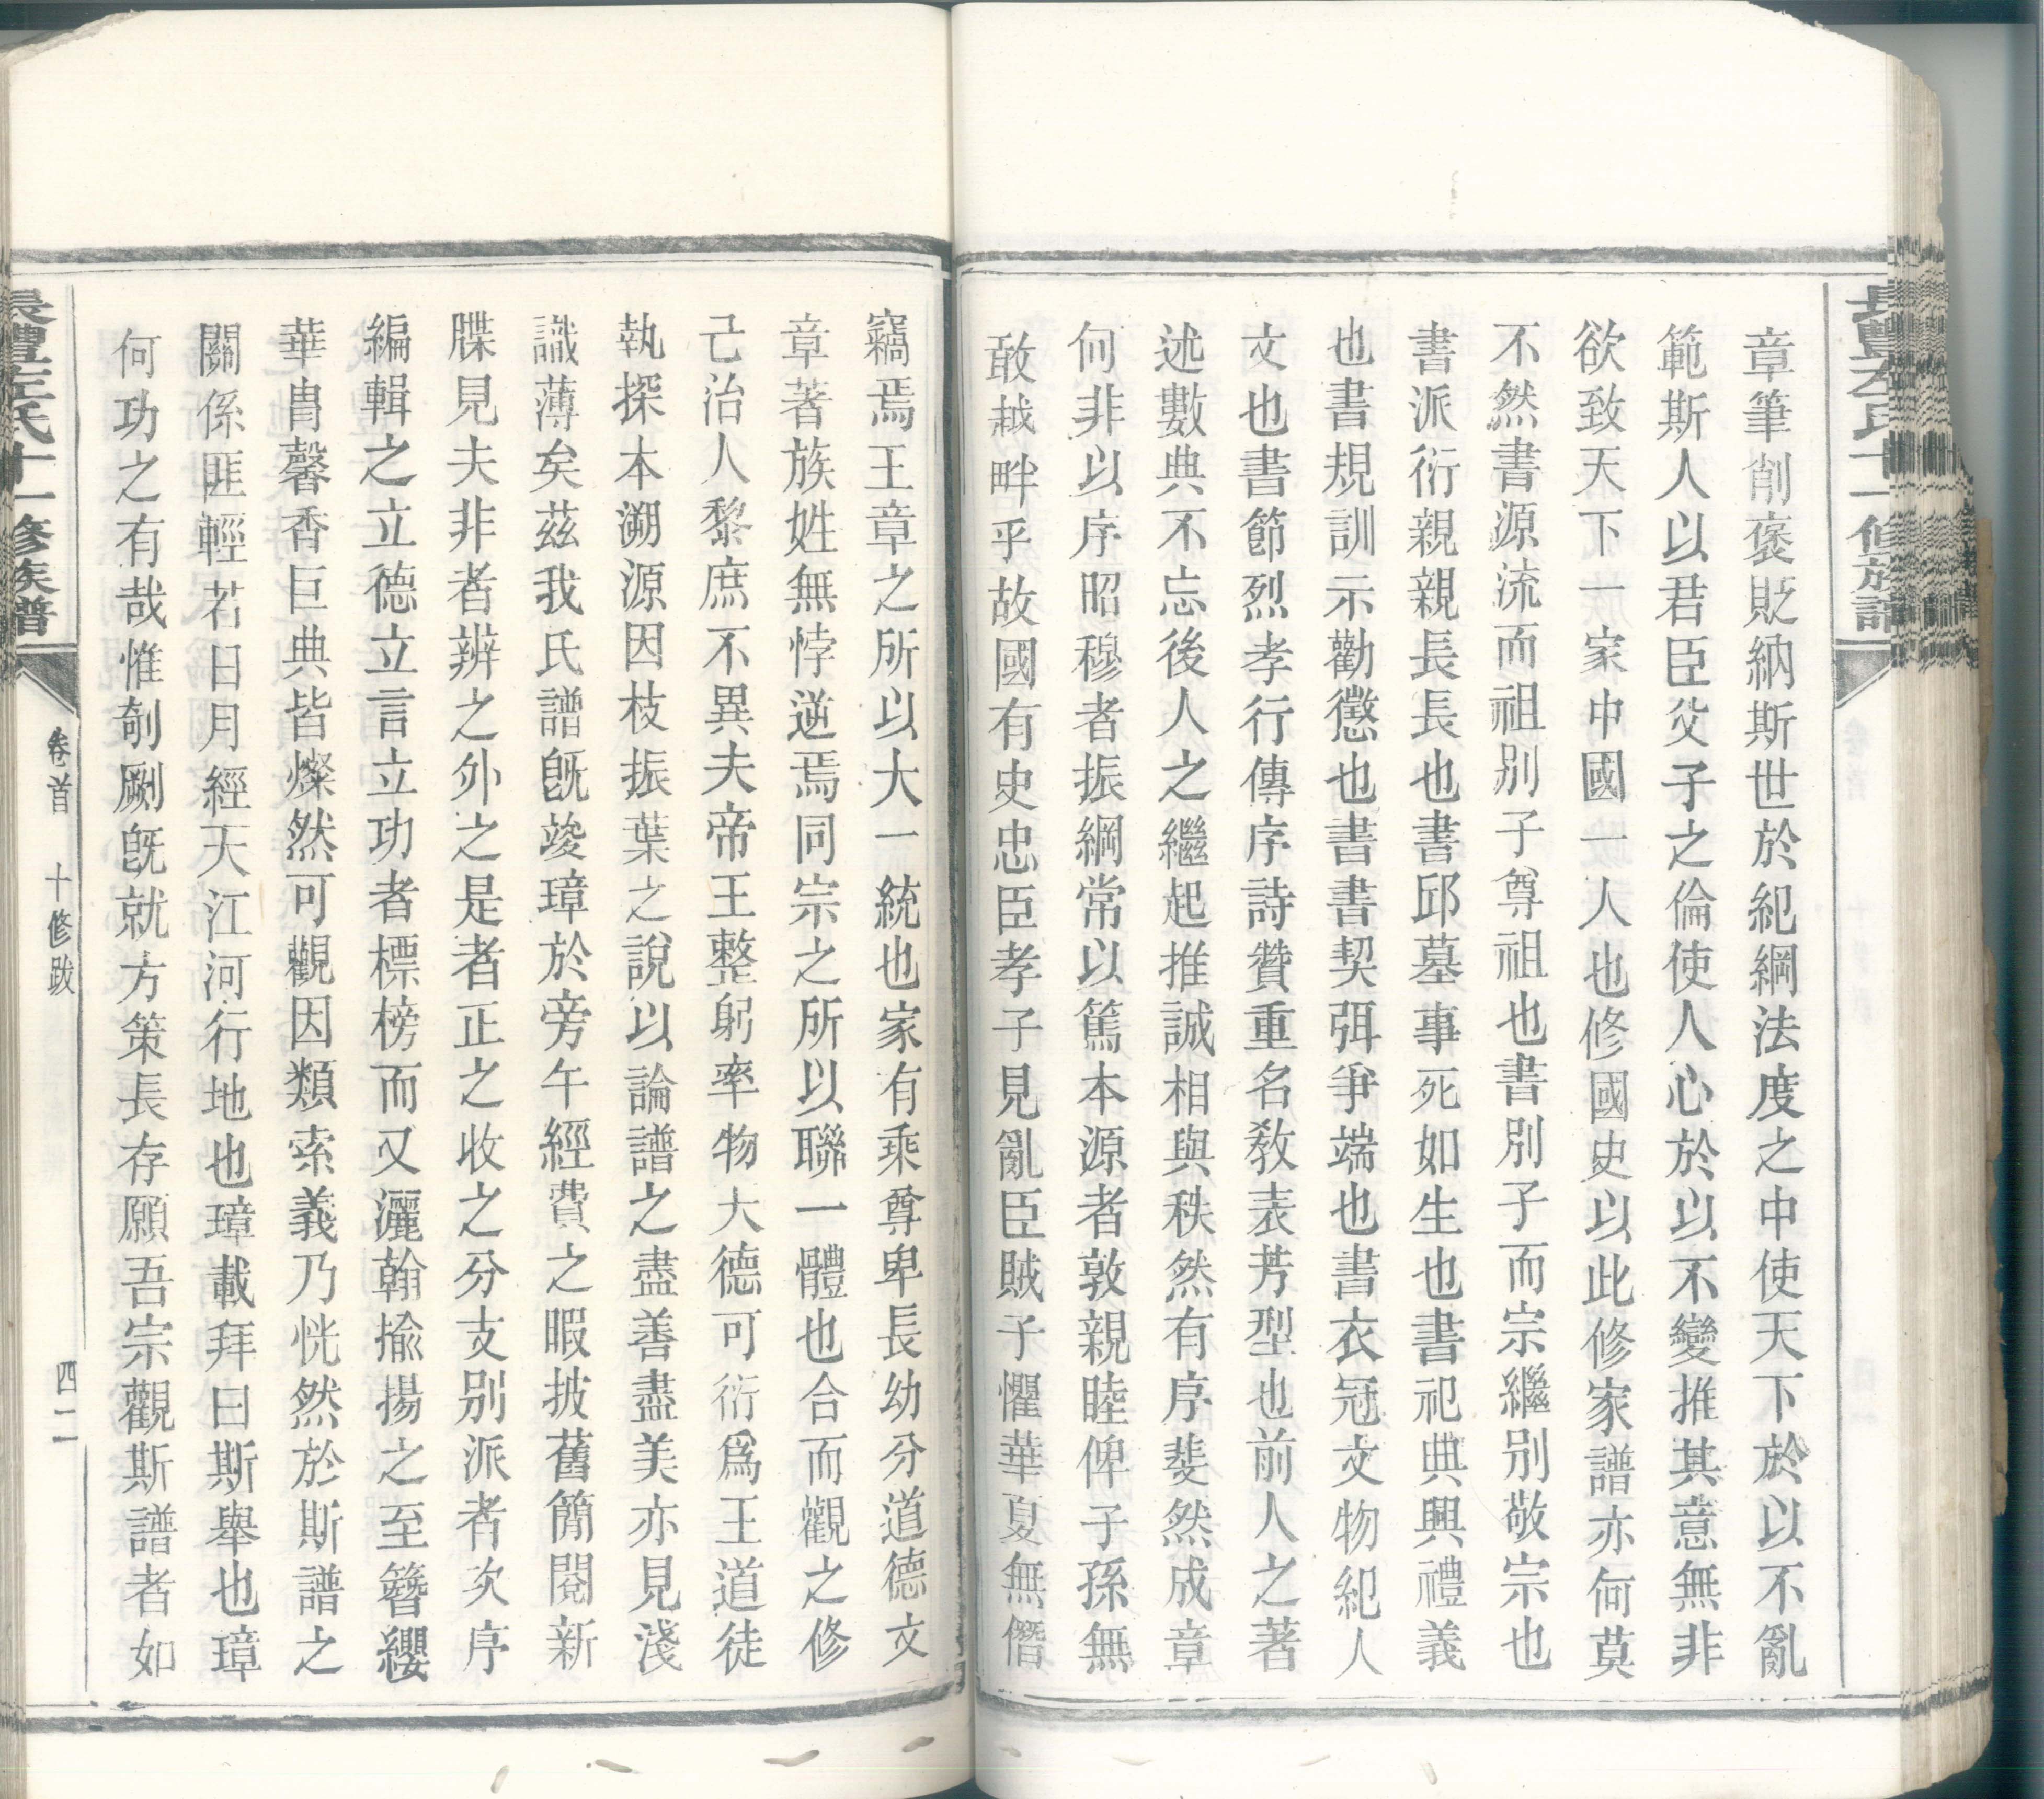 長豐左氏十一修族譜
章筆削褒貶納斯世於紀綱法度之中使天下於以不亂
範斯人以君臣父子之倫使人心於以不變推其意無非
欲致天下一家中國一人也修國史以此修家譜亦何莫
不然書源流而祖別子尊祖也書別子而宗繼別敬宗也
書派衍親親長長也書邱墓事死如生也書祀典興禮義
也書規訓示勸懲也書書契弭爭端也書衣冠文物紀人
文也書節烈孝行傳序詩贊重名教表芳型也前人之著
述數典不忘後人之繼起推誠相與秩然有序斐然成章
何非以序昭穆者振綱常以篤本源者敦親睦俾子孫無
敢越畔乎故國有史忠臣孝子見亂臣賊子懼華夏無僭
竊焉王章之所以大一統也家有乘尊卑長幼分道德文
章著族姓無悖逆焉同宗之所以聯一體也合而觀之修
己治人黎庶不異夫帝王整躬率物大德可衍爲王道徒
執探本溯源因枝振葉之說以論譜之盡善盡美亦見淺
識薄矣茲我氏譜旣竣璋於旁午經費之暇披舊簡閱新
牒見夫非者辨之外之是者正之收之分支別派者次序
編輯之立德立言立功者標榜而又灑翰揄揚之至簪纓
華胄馨香巨典皆燦然可觀因類索義乃恍然於斯譜之
關係匪輕若日月經天江河行地也璋載拜曰斯舉也璋
何功之有哉惟剞劂旣就方策長存願吾宗觀斯譜者如
長豐左氏十一修族譜
卷首 十修跋 四二